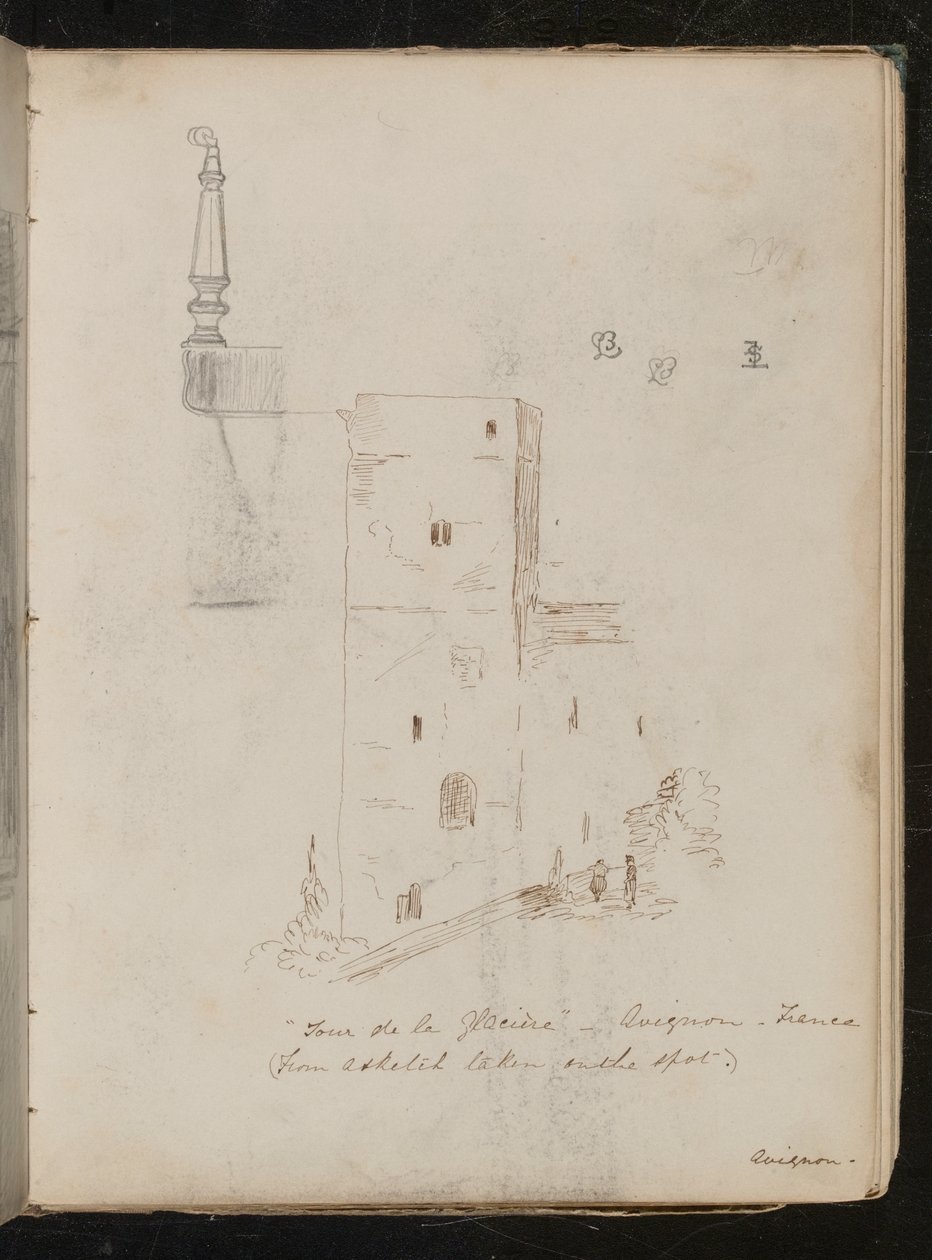 "Tour de la Glacière" – Avignon – France
(From a sketch taken on the spot.)
Avignon –